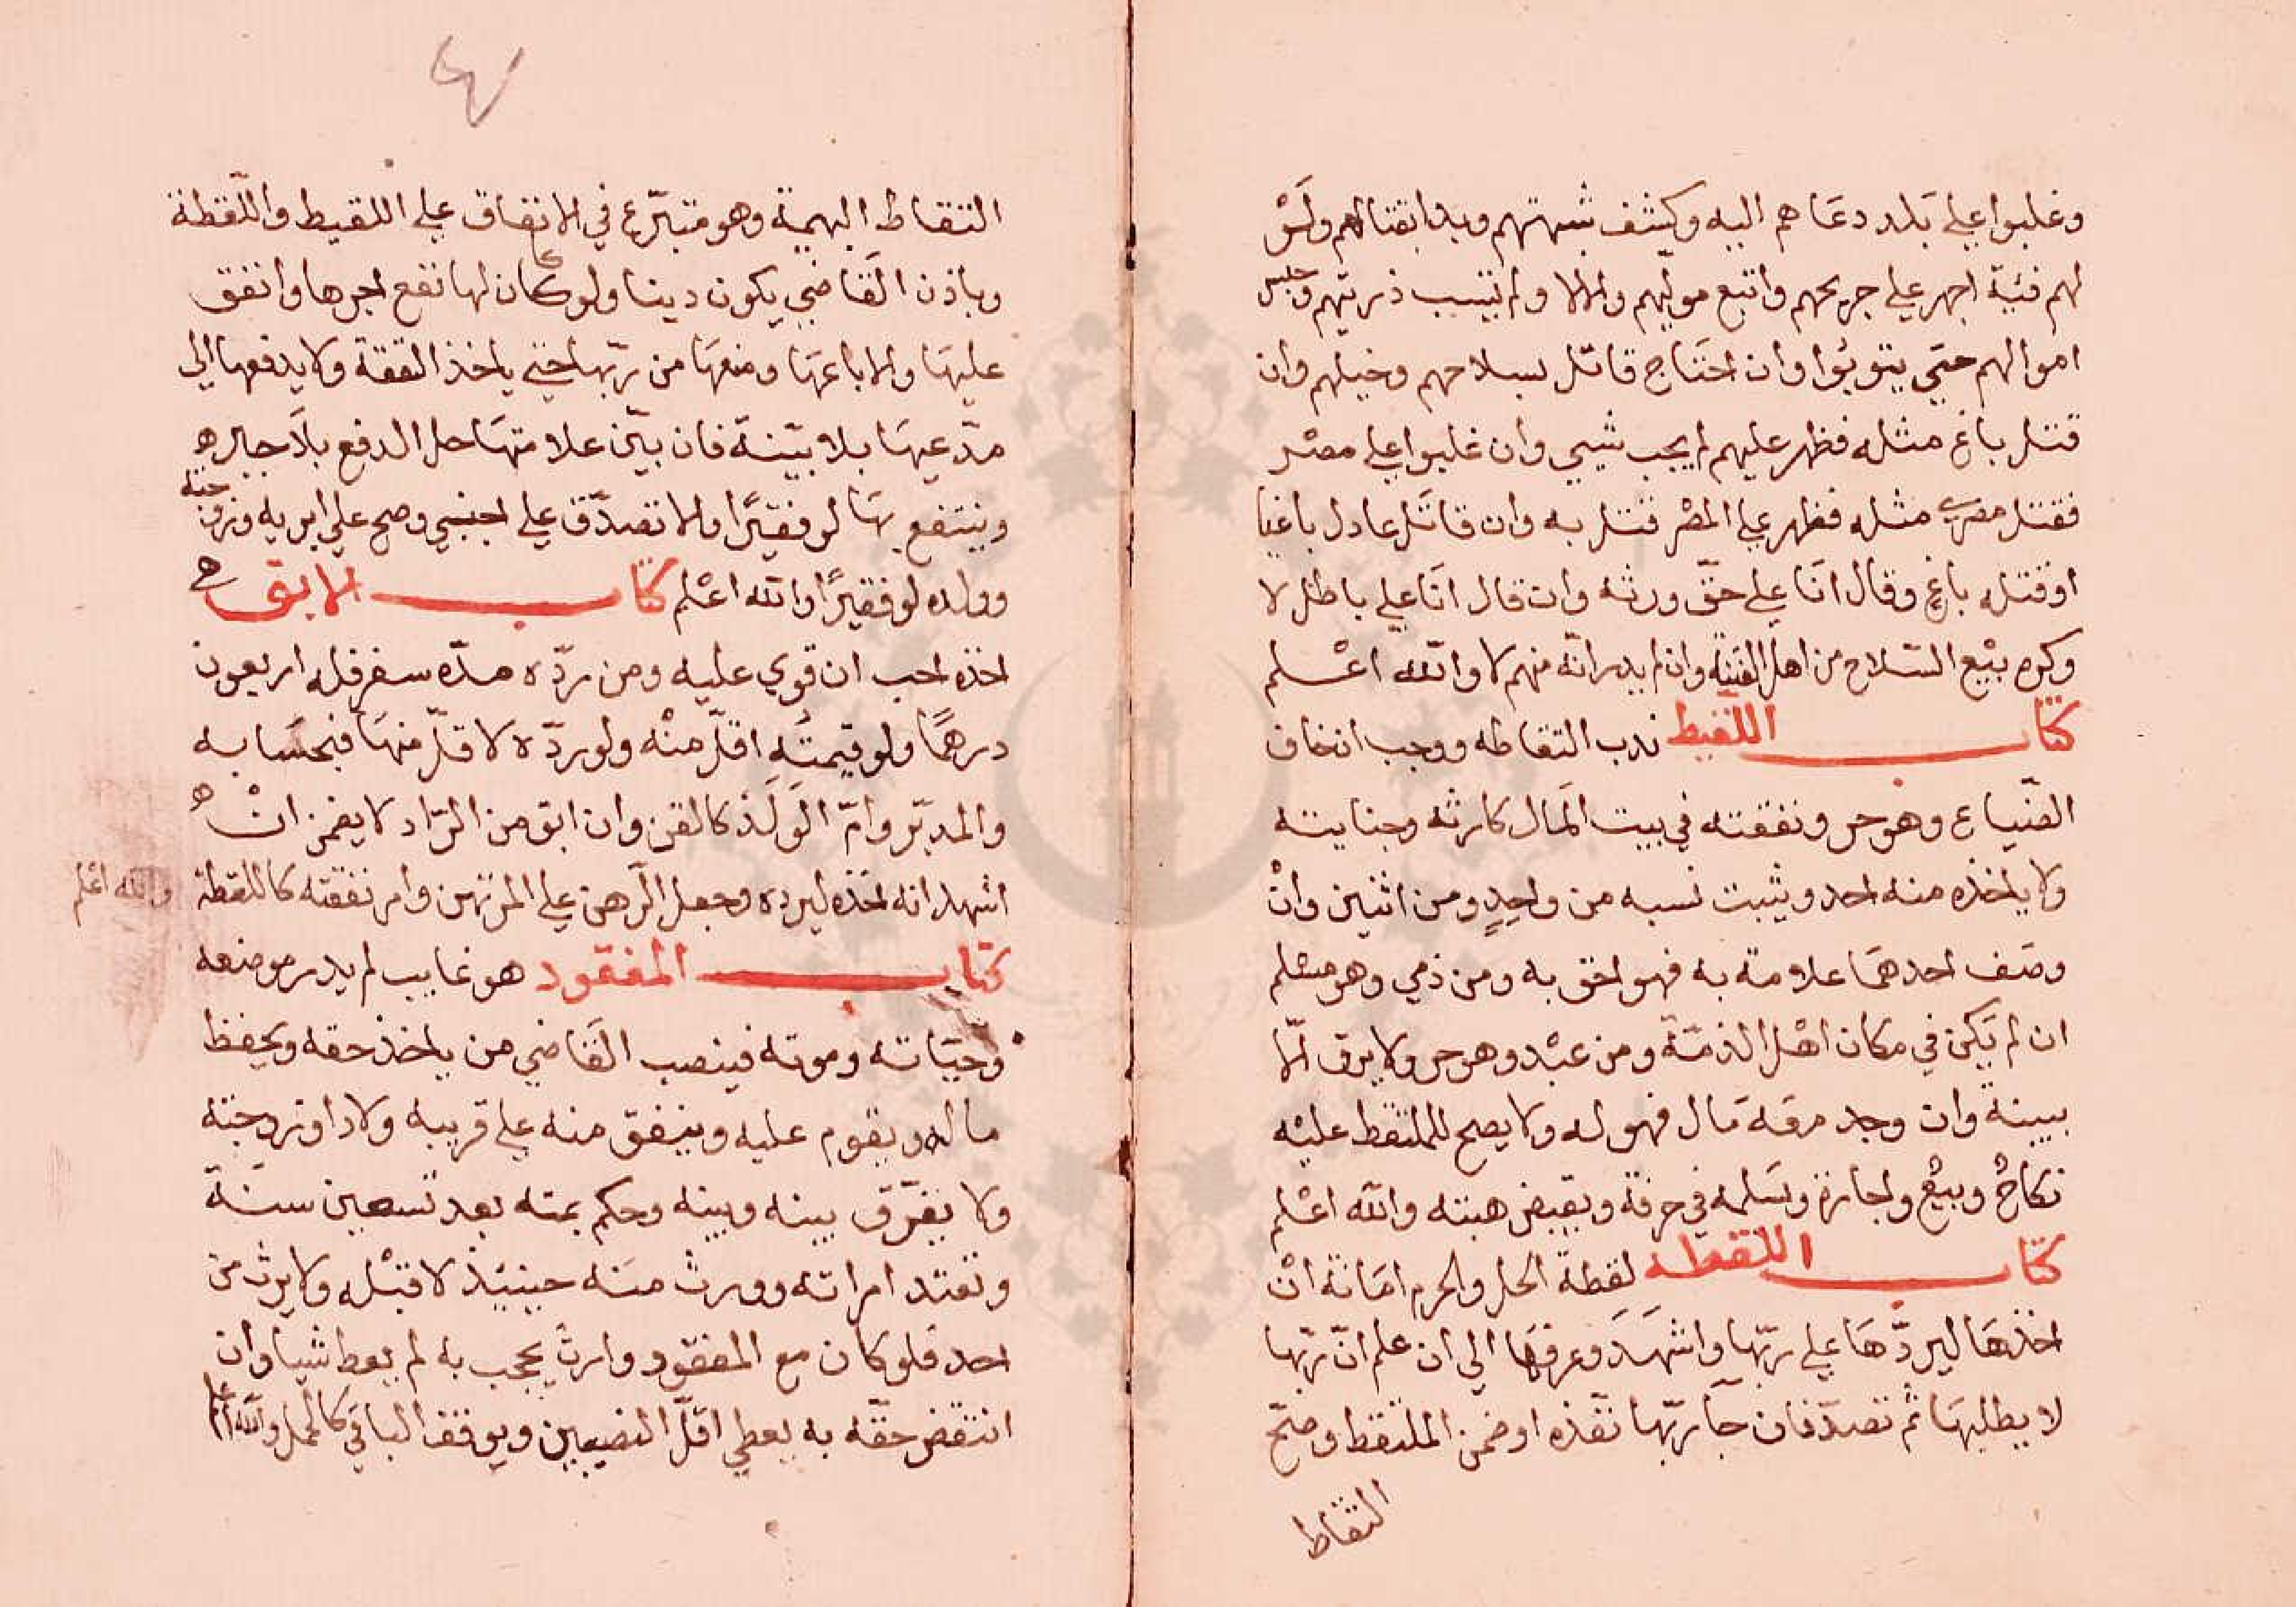 وغلبوا علي بلد دعاهم اليه وكشف شبهتهم وبدا بقتالهم ولو
لهم فئية اجهز علي جريحهم واتبع موليهم والا لا ولم تسب ذريتهم وحبس
اموالهم حتي يتوبوا وان احتاج قاتل بسلاحهم وخيلهم وان
قتل باغ مثله فظهر عليهم لم يجب شيي وان غلبوا علي مصر
فقتل مصري مثله فظهر علي المصر قتل به وان قاتل عادل باغيا
اوقتله باغ وقال انا علي حق ورثه وان قال انا علي باطل لا
وكره بيع السلاح من اهل الفتنة وان لم يدر انه منهم لا والله اعلم
كتاب اللقيط ندب التقاطه ووجب ان خاف
الضياع وهو حر ونفقته في بيت المال كارثه وجنايته
ولا ياخذه منه احد ويثبت نسبه من واحد ومن اثنين وان
وصف احدهما علامة به فهو احق به ومن ذمي وهو مسلم
ان لم يكن في مكان اهل الذمة ومن عبد وهو حر ولا يرق الا
ببينة وان وجد معه مال فهو له ولا يصح للملتقط عليه
نكاح وبيع واجارة ويسلمه في حرفة ويقبض هبته والله اعلم
كتاب اللقطه لقطة الحل والحرم امانة ان
اخذها ليردها علي ربها واشهد وعرفها الي ان علم ان ربها
لا يطلبها ثم تصدق فان جآ ربها نفذه او ضمن الملتقط وصح
التقاط
٤٧
التقاط البهيمة وهو متبرع في الانفاق علي اللقيط واللقطة
وباذن القاضي يكون دينا ولو كان لها نفع اجرها وانفق
عليها والا باعها ومنعها من ربها حتي ياخذ النفقة ولا يدفعها الي
مدعيها بلا بينة فان بين علامتها حل الدفع بلا جبر ه
وينتفع بها لو فقيرا والا تصدق علي اجنبي وصح علي ابويه وزوجته
وولده لو فقيرا والله اعلم كتاب الابق ه
اخذه احب ان قوي عليه ومن رده مدة سفر فله اربعون
درهما ولو قيمته اقل منه ولو رده لاقل منها فبحسابه
والمدبر وام الولد كالقن وان ابق من الراد لا يضمن ان ه
اشهد انه اخذه ليرده وجعل الرهن علي المرتهن وامر نفقته كاللقطة والله اعلم
كتاب المفقود هو غايب لم يدر موضعه
وحياته وموته فينصب القاضي من ياخذ حقه ويحفظ
ماله ويقوم عليه وينفق منه علي قريبه ولادا وزوجته
ولا يفرق بينه وبينه وحكم بمته بعد تسعين سنة
وتعتد امراته وورث منه حينيذ لا قبله ولا يرث من
احد فلو كان مع المفقود وارث يحجب به لم يعط شييا وان
انتقض حقه به يعطي اقل النصيبين ويوقف الباقي كالحمل والله اعلم